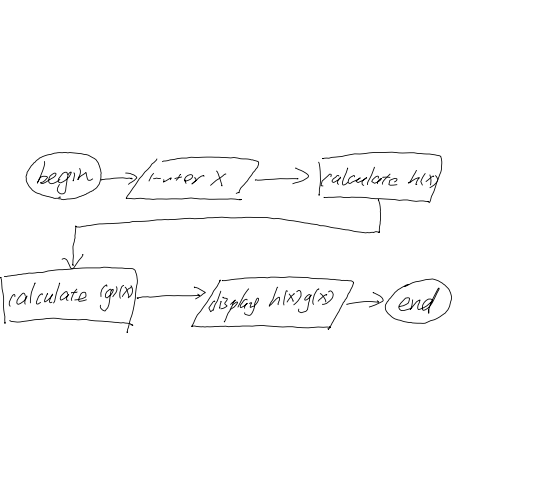 begin
inter X
calculate h(x)
calculate g(x)
display h(x)g(x)
end